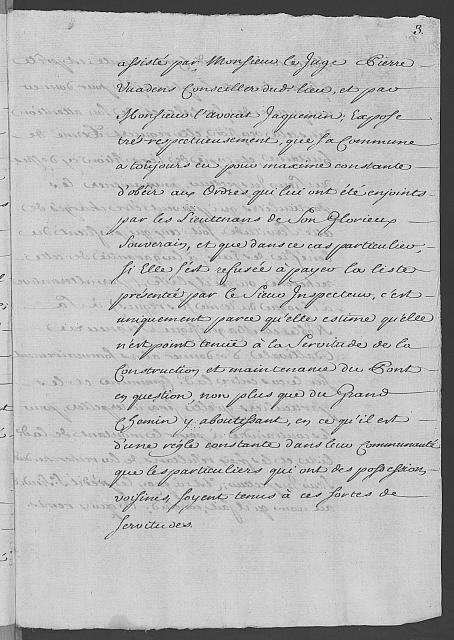 3.
assisté par Monsieur le Juge Pierre
Vuadens Conseiller dudt lieu, et par
Monsieur l'avocat Jaquemin; Expose
tres respectueusement, que sa Commune
a toujours eu pour maxime constante
d'obeir aux Ordres, qui lui ont été enjoints
par les Lieutenans de Son Glorieux
Souverain, et que dans ce cas particulier,
si Elle s'est refusée à payer la liste
présentée par le Sieur Inspecteur, c'est
uniquement parce qu'elle estime qu'elle
n'est point tenüe à la Servitude de la
Construction et maintenance du Pont
en question, non plus que du Grand
Chemin y aboutissant, en ce qu'il est
d'une regle constante dans leur Communauté
que les particuliers qui ont des possessions
voisines, soyent tenus à ces sortes de
servitudes.